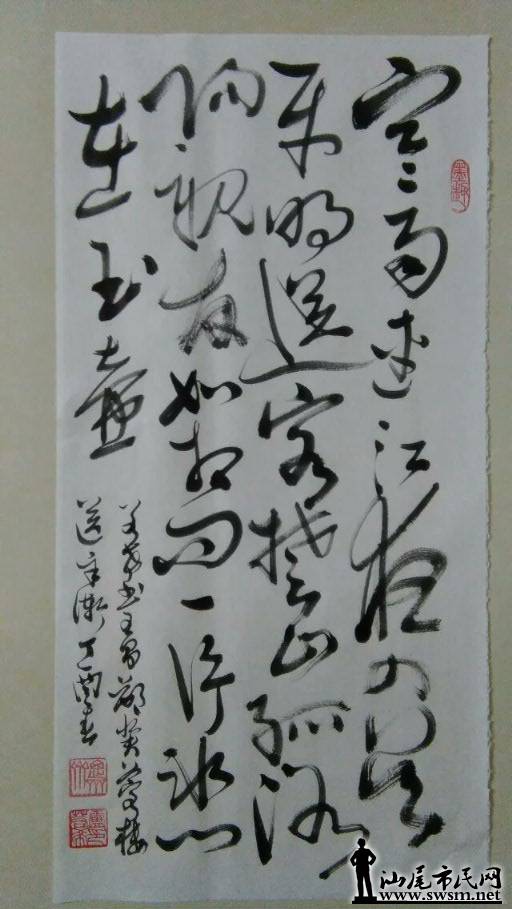 墨趣
寒雨連江夜入吴
平明送客楚山孤洛
陽親友如相問一片冰心
在玉壺
书王昌齡芙蓉楼
送辛漸丁酉春
汕尾市民网
www.swsm.net